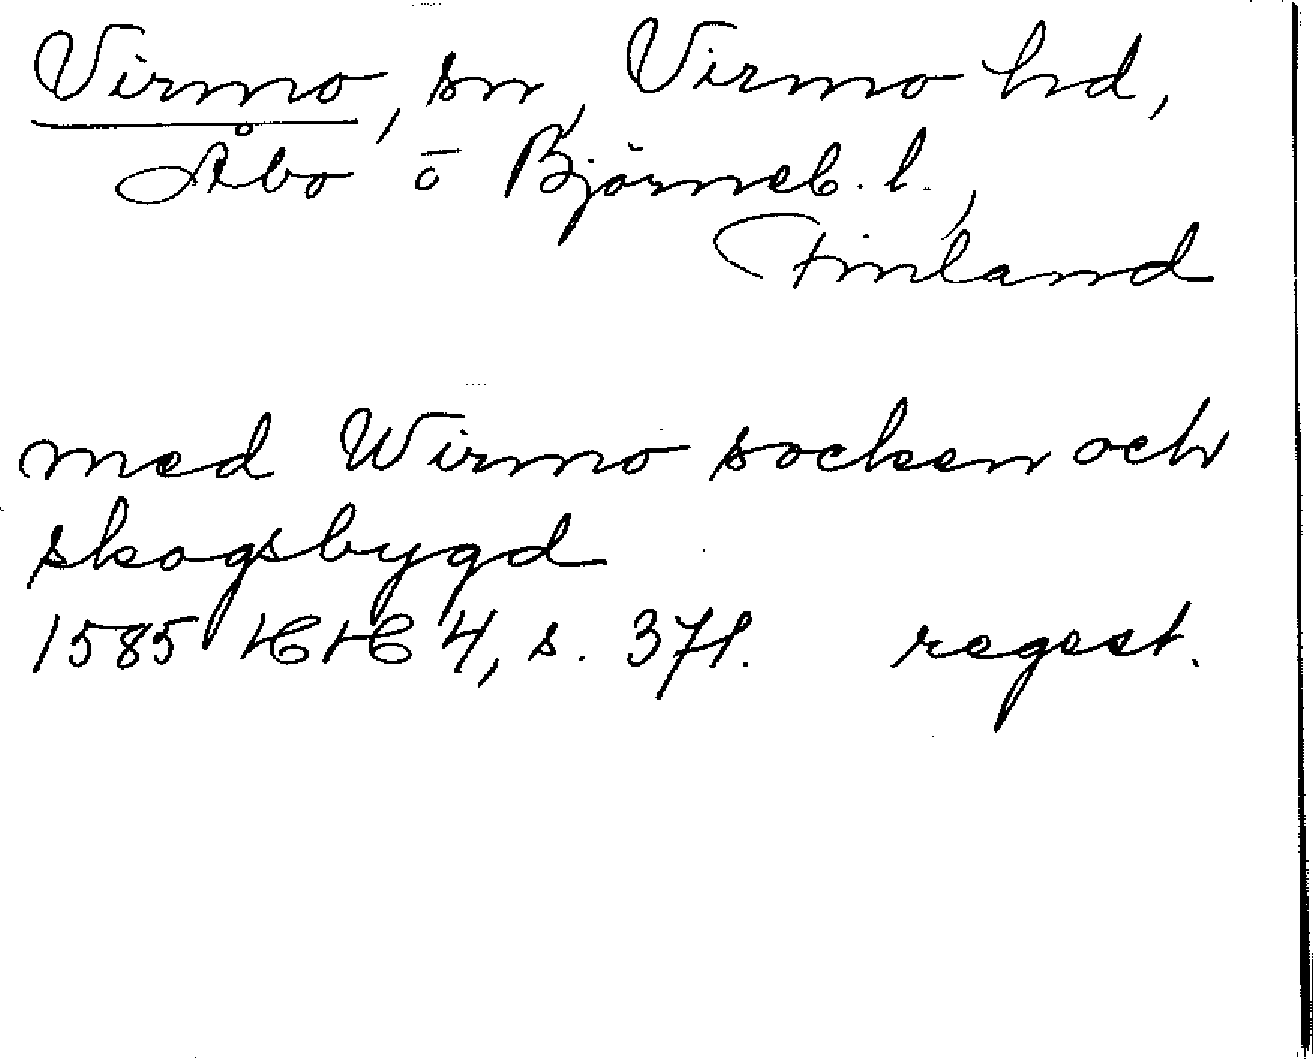 Virmo, sn, Virmo hd,
Åbo o Björneb. l.,
Finland
med Wirmo socken och
skogsbygd
1585 HCHC 4, s. 37f. regest.